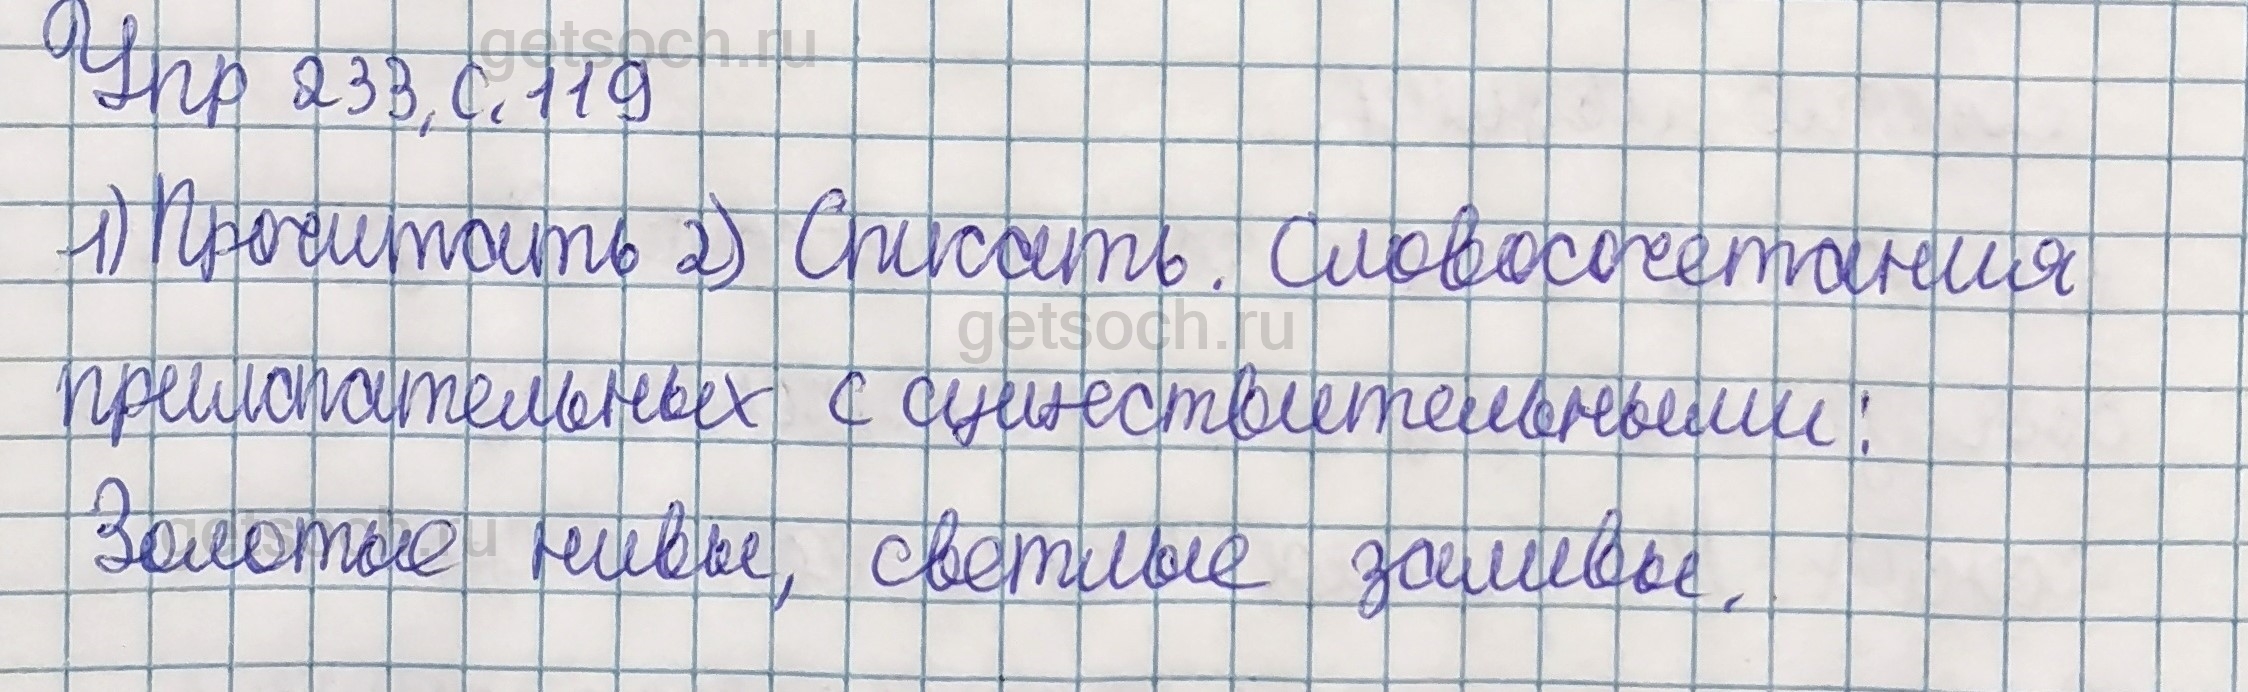 getsoch.ru
Упр 233, с. 119
1) Прочитать 2) Списать. Словосочетания
getsoch.ru
прилагательных с существительными:
getsoch.ru
Золотые нивы, светлые заливы.